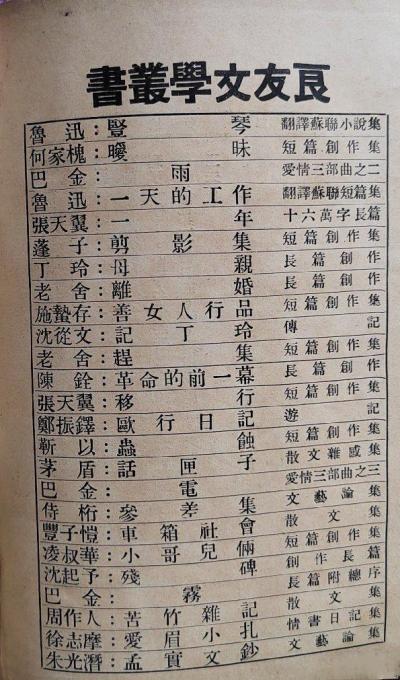 良友文學叢書
魯迅：豎琴 翻譯蘇聯小說集
何家槐：曖昧 短篇創作集
巴金：雨 愛情三部曲之二
魯迅：一天的工作 翻譯蘇聯短篇集
張天翼：一年 十六萬字長篇
蓬子：剪影集 短篇創作集
丁玲：母親 長篇創作
老舍：離婚 長篇創作
施蟄存：善女人行品 短篇創作集
沈從文：記丁玲 傳記
老舍：趕集 短篇創作集
陳銓：革命的前一幕 長篇創作
張天翼：移行 短篇創作集
鄭振鐸：歐行日記 遊記
靳以：蟲蝕 短篇創作集
茅盾：話匣子 散文雜感集
巴金：電 愛情三部曲之三
侍桁：參差集 文藝論集
豐子愷：車箱社會 散文集
凌叔華：小哥兒倆 短篇創作集
沈起予：殘碑 創作長篇
巴金：霧 長篇附總序
周作人：苦竹雜記 散文集
徐志摩：愛眉小札 情書日記集
朱光潛：孟實文鈔 文藝論集